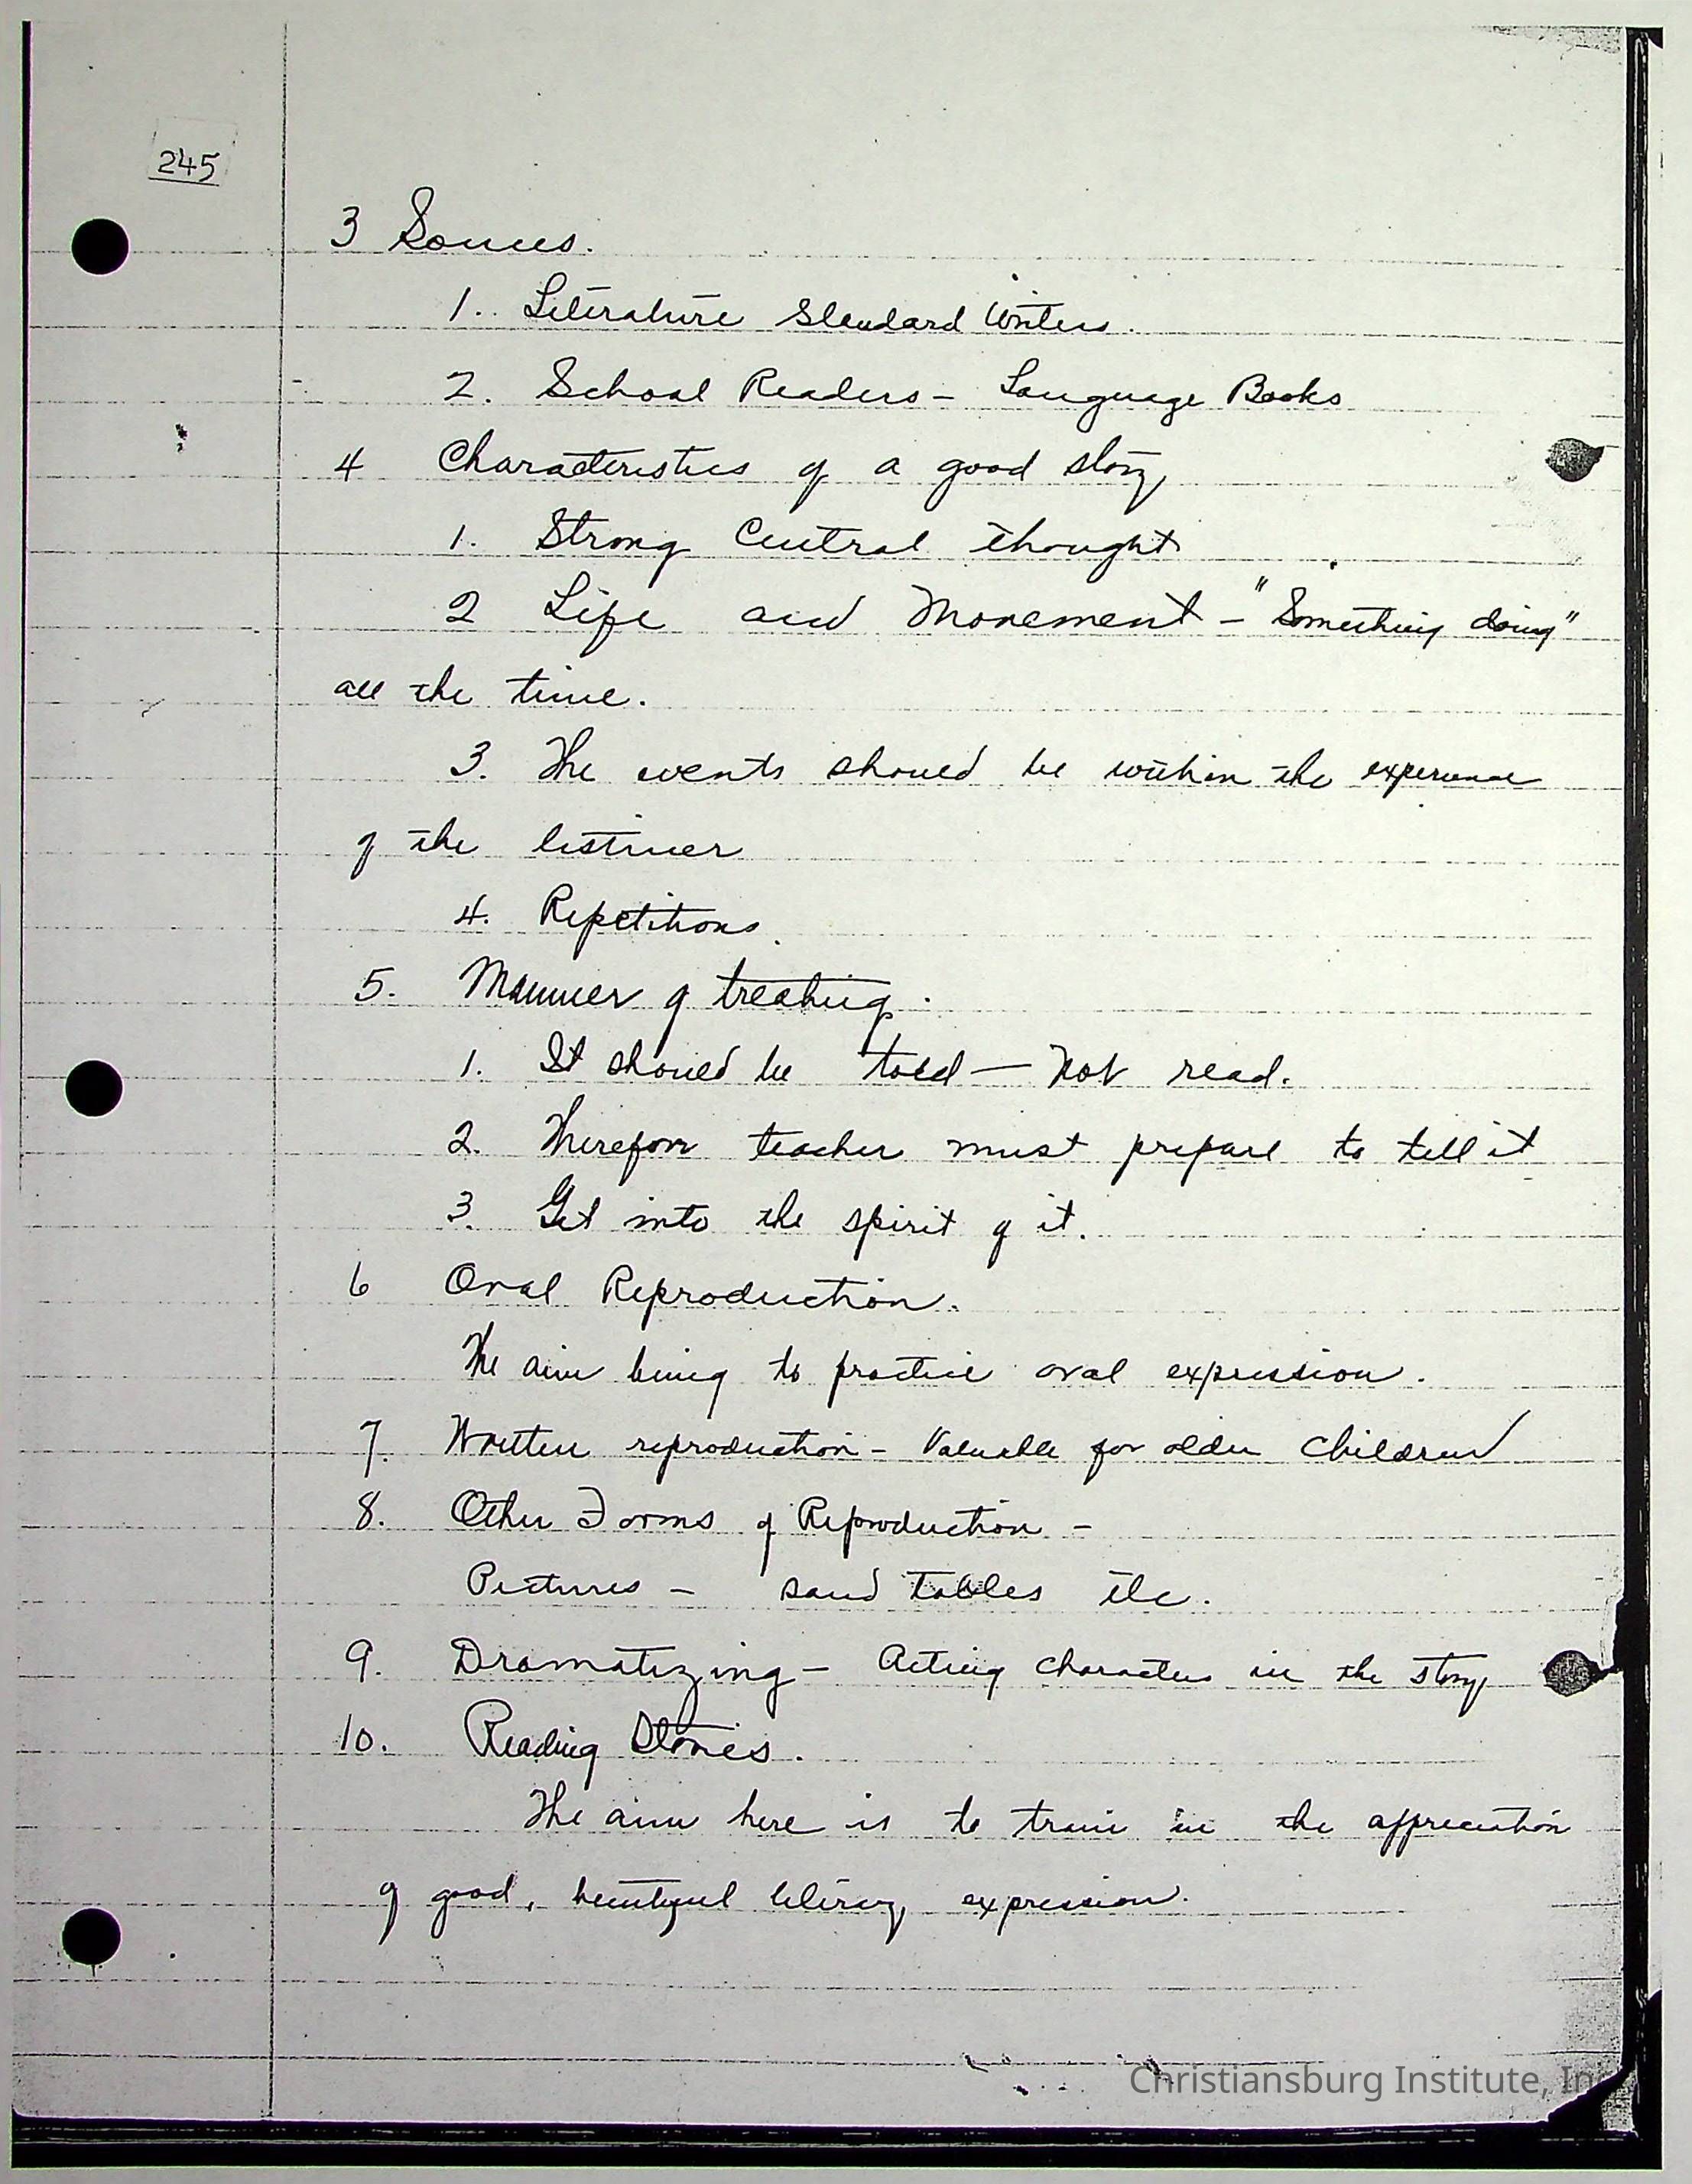 245
3 Sources.
1.. Literature Standard Writers.
2. School Readers - Language Books
4 Characteristics of a good story
1. Strong Central thought
2 Life and Movement - "Something doing"
all the time.
3. The events should be within the experience
of the listener
4. Repetitions.
5. Manner of treating.
1. It should be told - Not read.
2. Therefore teacher must prepare to tell it
3. Get into the spirit of it.
6 Oral Reproduction.
The aim being to practice oral expression.
7. Written reproduction - Valuable for older children
8. Other Forms of Reproduction -
Pictures - sand tables etc.
9. Dramatizing - Acting characters in the story
10. Reading Stories.
The aim here is to train in the appreciation
of good, beautiful literary expression.
Christiansburg Institute, Inc